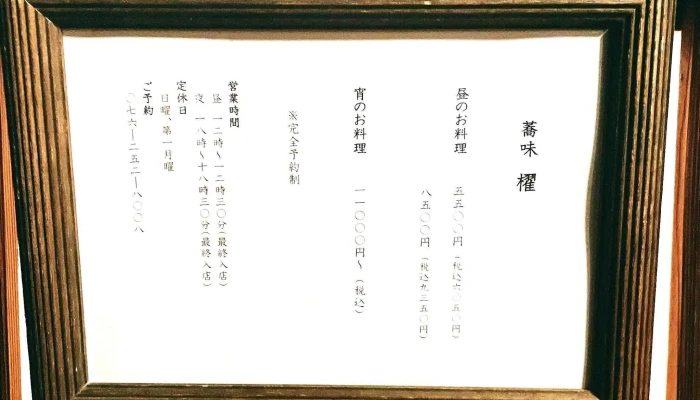 蕎味 櫂
昼のお料理 五五〇〇円（税込六〇五〇円）
八五〇〇円（税込九三五〇円）
宵のお料理 一一〇〇〇円～（税込）
※完全予約制
営業時間
昼 一二時～一二時三〇分（最終入店）
夜 一八時～十八時三〇分（最終入店）
定休日
日曜、第一月曜
ご予約
〇七六ー二五二ー八〇〇八